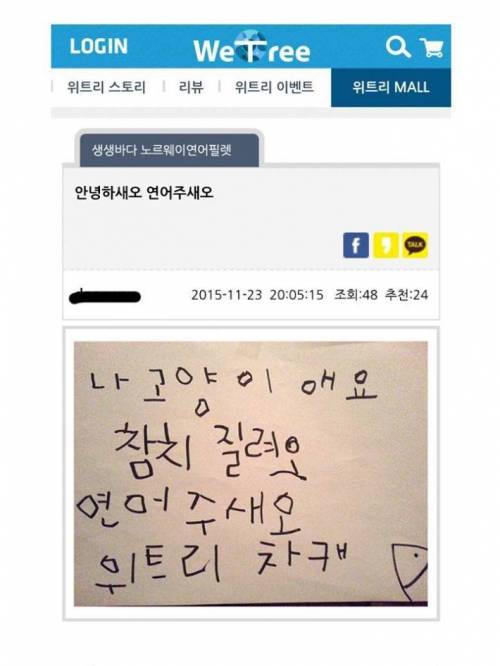 LOGIN WeTree
위트리 스토리 리뷰 위트리 이벤트 위트리 MALL
생생바다 노르웨이연어필렛
안녕하새오 연어주새오
f TALK
2015-11-23 20:05:15 조회:48 추천:24
나 고양이 애요
참치 질려요
연어 주새오
위트리 차캐